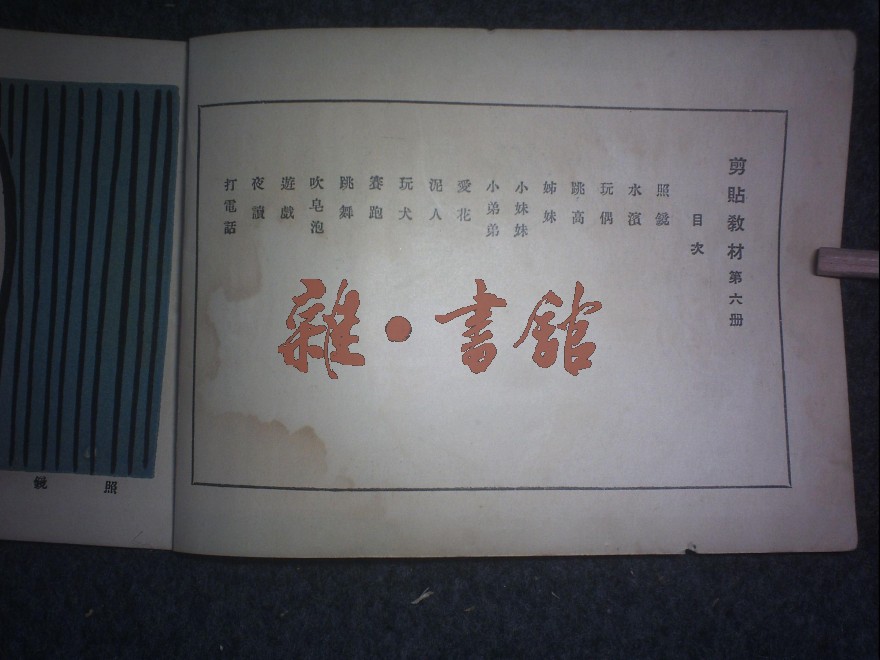 剪貼教材第六册
目次
照鏡
水濱
玩偶
跳高
姊妹
小妹妹
小弟弟
愛花
泥人
玩犬
賽跑
跳舞
吹皂泡
遊戲
夜讀
打電話
雜·書館
照鏡